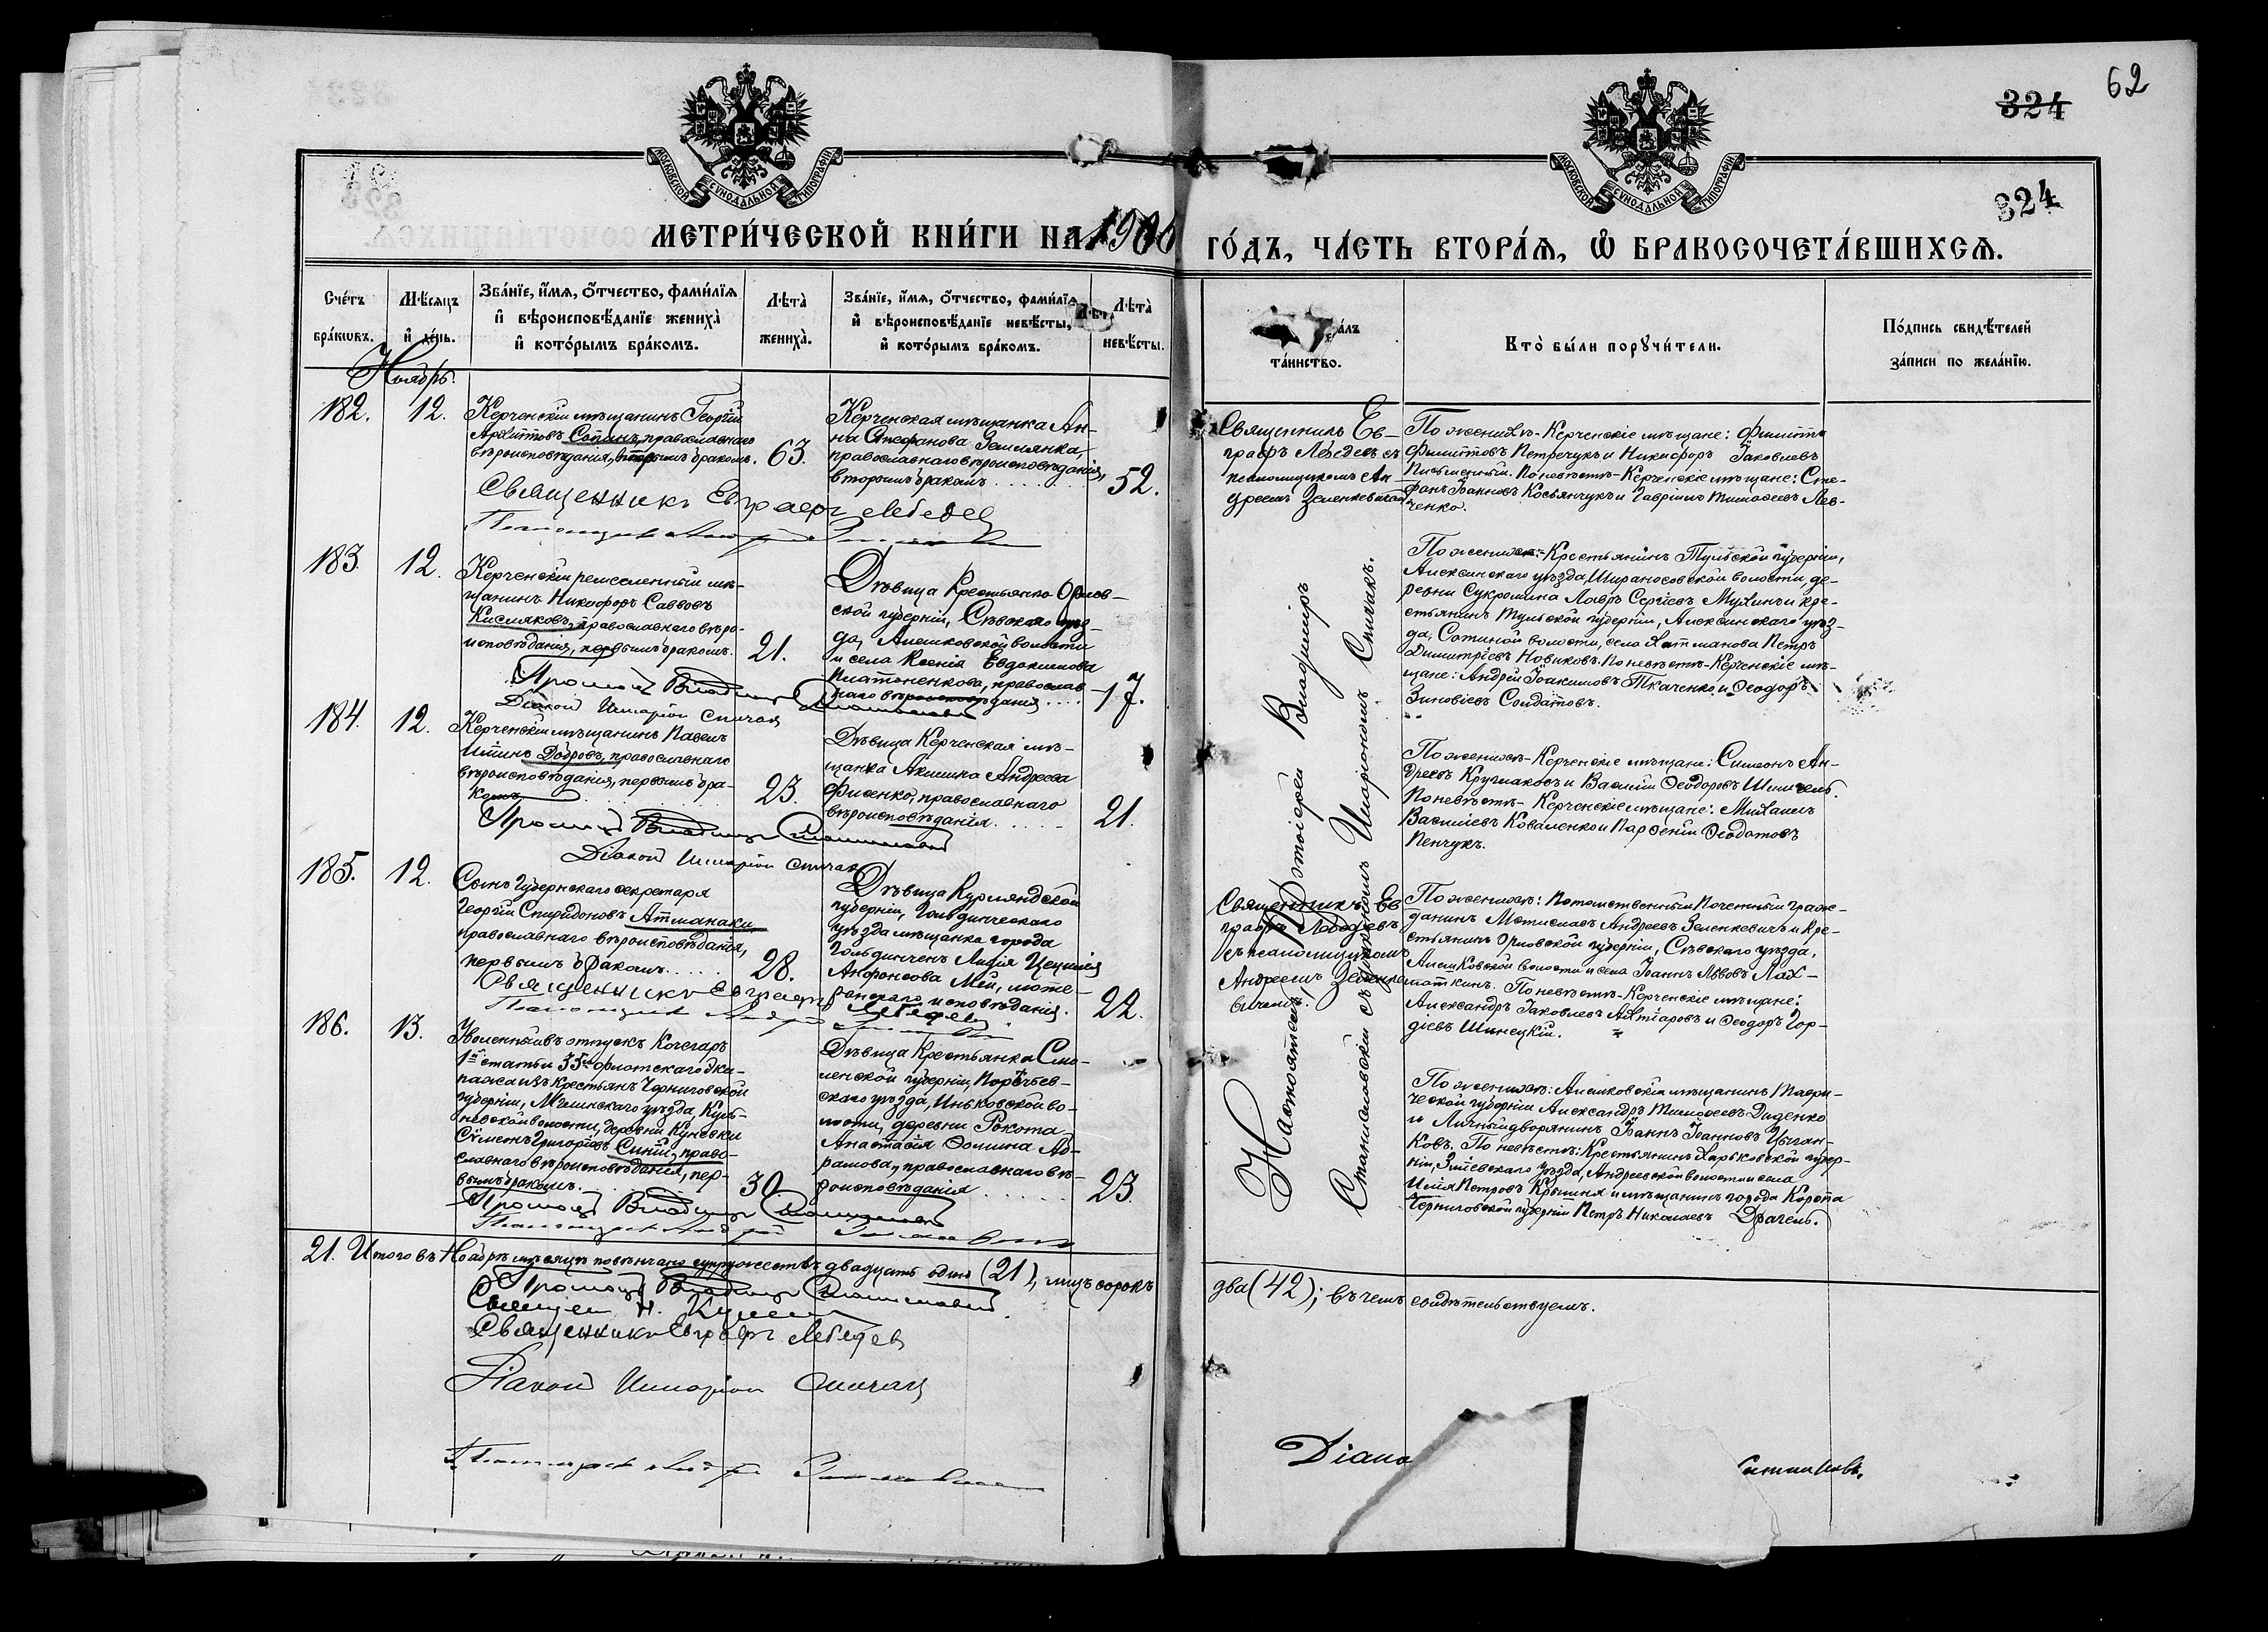 62
324
324
МОСКОВСКОЙ СУНОДАЛЬНОЙ ТИПОГРАФІИ
МОСКОВСКОЙ СУНОДАЛЬНОЙ ТИПОГРАФІИ
МЕТРИ́ЧЕСКОЙ КНИ́ГИ НА 1906 ГО́ДЪ, ЧА́СТЬ ВТОРА́Я, Ѡ БРАКОСОЧЕТА́ВШИХСЯ.
Сче́тъ бра́кѡвъ.
Мѣ́сяцъ и҆ де́нь.
Зва́нїе, и҆́мя, ѻ҆́тчество, фами́лїя
и҆ вѣроисповѣ́данїе жениха̀
и҆ кото́рымъ бра́комъ.
Лѣта̀ жениха̀.
Зва́нїе, и҆́мя, ѻ҆́тчество, фами́лїя
и҆ вѣроисповѣ́данїе невѣ́сты,
и҆ кото́рымъ бра́комъ.
Лѣта̀ невѣ́сты.
та́инство.
Кто̀ бы́ли порꙋчи́тели.
По́дпись свидѣ́телей
за́писи по жела́нїю.
Ноябрь.
182. 12. Керченскій мѣщанинъ Георгій
Архиповъ православнаго
вѣроисповѣданія, вторымъ бракомъ. 63.
Керченская мѣщанка Ан-
на Стефанова Землянка,
православнаго вѣроисповѣданія,
вторымъ бракомъ 52.
Священникъ Евграфъ Лебедев
Священникъ Ев-
графъ Лебедевъ съ
псаломщикомъ Ан-
дреемъ Зеленкевичем
По женихѣ - Керченскіе мѣщане: Филиппъ
Филипповъ Петречукъ и Никифоръ Іаковлевъ
Письменный. По невѣстѣ - Керченскіе мѣщане: Сте-
фанъ Іоанновъ Косьянчукъ и Гавріилъ Тимоѳеевъ Лев-
ченко.
183. 12. Керченскій ремесленный мѣ-
щанинъ Никифоръ Саввовъ
Кисляковъ, православнаго вѣро-
исповѣданія, первымъ бракомъ. 21.
Дѣвица Крестьянка Орлов-
ской губерніи, Сѣвскаго уѣз-
да, Алешковской волости
и села Ксенія Евдокимова
Платоненкова, православ-
наго вѣроисповѣданія 17.
Діакон Иларіон Спичак
По женихѣ: Крестьянинъ Тульской губерніи,
Алексинскаго уѣзда, Широносовской волости, де-
ревни Сукромина Лавръ Сергіевъ Мухинъ и кре-
стьянинъ Тульской губерніи, Алексинскаго уѣз-
да, Сотиной волости, села Петръ
Димитріевъ Новиковъ. По невѣстѣ - Керченскіе мѣ-
щане: Андрей Іоакимовъ Ткаченко и Ѳеодоръ
Зиновіевъ Солдатовъ.
184. 12. Керченскій мѣщанинъ Павелъ
Ильинъ Добровъ, православнаго
вѣроисповѣданія, первымъ бра-
комъ 23.
Дѣвица Керченская мѣ-
щанка Акилина Андреева
Фисенко, православнаго
вѣроисповѣданія 21.
Діакон Иларіон Спичак
По женихѣ - Керченскіе мѣщане: Симеонъ Ан-
дреевъ Кругляковъ и Василій Ѳеодоровъ
По невѣстѣ - Керченскіе мѣщане: Михаилъ
Василіевъ Коваленко и Парѳеній Ѳеодотовъ
Пенчукъ.
Настоятель, Протоіерей Владиміръ
Станиславскій съ діакономъ Иларіономъ Спичакъ.
185. 12. Сынъ Губернскаго секретаря
Георгій Спиридоновъ Атманаки,
православнаго вѣроисповѣданія,
первымъ бракомъ 28.
Дѣвица Курляндской
губерніи, Гольдингскаго
уѣзда мѣщанка города
Гольдингенъ Лидія Цецилія
Альфонсова Мей, люте-
ранскаго исповѣданія. 22.
Священникъ Евграфъ Лебедев
Священникъ Ев-
графъ Лебедевъ
съ псаломщикомъ
Андреемъ Зеленке-
вичемъ.
По женихѣ: Потомственный Почетный граж-
данинъ Мстиславъ Андреевъ Зеленкевичъ и Кре-
стьянинъ Орловской губерніи, Сѣвскаго уѣзда,
Алешковской волости и села Іоаннъ Львовъ Лах-
маткинъ. По невѣстѣ - Керченскіе мѣщане:
Александръ Іаковлевъ Ахтіаровъ и Ѳеодоръ Гор-
діевъ Шинецкій.
186. 13. Уволенный въ отпускъ Кочегаръ
1й статьи 33го флотскаго эки-
пажа изъ крестьянъ Черниговской
губерніи, Мглинскаго уѣзда, Куль-
невской волости, деревни Куневки
Сѵмеонъ Григоріевъ Синій, право-
славнаго вѣроисповѣданія, пер-
вымъ бракомъ. 30.
Дѣвица Крестьянка Смо-
ленской губерніи Порѣчьев-
скаго уѣзда, Иньковской во-
лости, деревни Рокота
Анастасія Ѳомина Аб-
рамова, православнаго вѣ-
роисповѣданія 23.
По женихѣ: Алешковскій мѣщанинъ Таври-
ческой губерніи Александръ Тимоѳеевъ Диденко
и Личный дворянинъ Іоаннъ Іоанновъ Цыган-
ковъ. По невѣстѣ: Крестьянинъ Харьковской губер-
ніи, Зміевскаго уѣзда, Андреевской волости и села
Илія Петровъ Крышня и мѣщанинъ города Коропа
Черниговской губерніи Петръ Николаевъ Драчень.
21. Итого въ Ноябрѣ мѣсяцѣ повѣнчано супружествъ двадцать одно (21), лицъ сорокъ
два (42); въ чемъ свидѣтельствуемъ.
Священникъ Евграфъ Лебедев
Діакон Иларіон Спичак
Діако